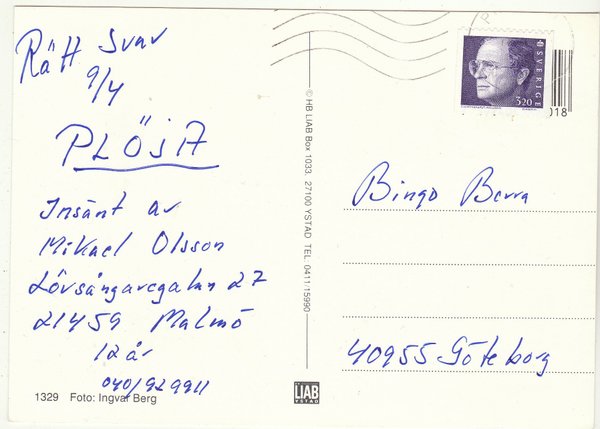 Rätt Svar
9/4
PLÖJA
Insänt av
Mikael Olsson
Lövsångaregatan 27
21459 Malmö
12 år
040/929911
1329 Foto: Ingvar Berg
© HB LIAB Box 1033. 27100 YSTAD TEL. 0411-15990
LIAB
YSTAD
SVERIGE
320
018
Bingo Berra
40955 Göteborg